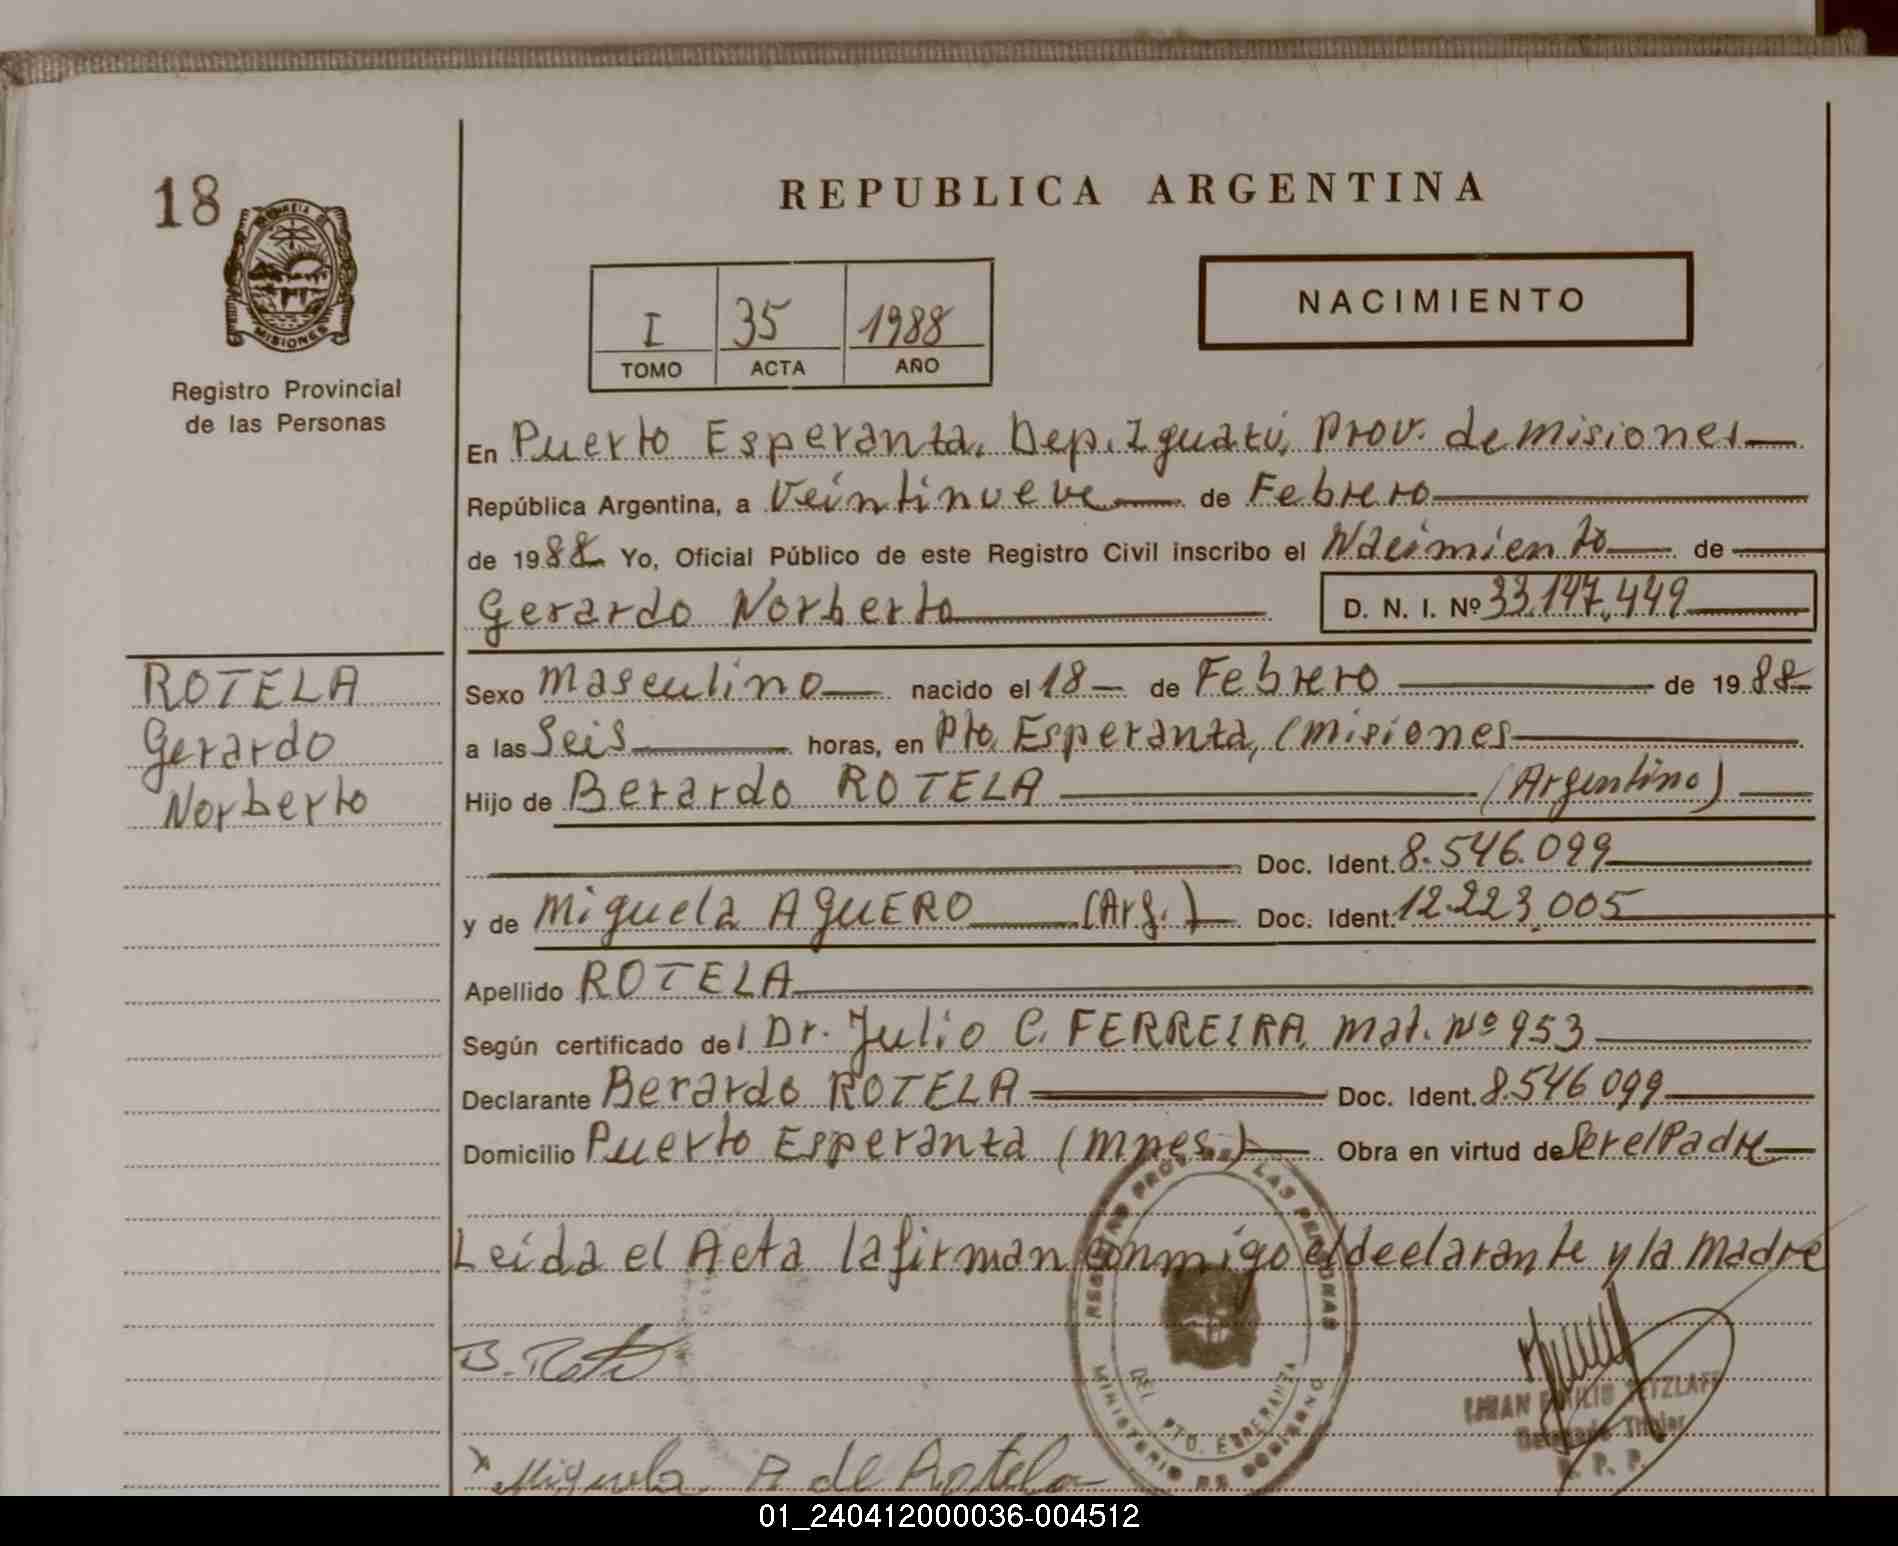 18
REPUBLICA ARGENTINA
MISIONES
Registro Provincial
de las Personas
I 35 1988
TOMO ACTA AÑO
NACIMIENTO
En Puerto Esperanza, Dep. Iguazú, Prov. de Misiones
República Argentina, a Veintinueve de Febrero
de 1988 Yo, Oficial Público de este Registro Civil inscribo el Nacimiento de
Gerardo Norberto D. N. I. Nº 33.147.449
ROTELA
Gerardo
Norberto
Sexo Masculino nacido el 18 de Febrero de 1988
a las Seis horas, en Pto. Esperanza, Misiones
Hijo de Berardo ROTELA (Argentino)
Doc. Ident. 8.546.099
y de Miguela AGUERO (Arg.) Doc. Ident. 12.223.005
Apellido ROTELA
Según certificado del Dr. Julio C. FERREIRA Mat. Nº 953
Declarante Berardo ROTELA Doc. Ident. 8.546.099
Domicilio Puerto Esperanza (Mnes.) Obra en virtud de Ser el Padre
Leída el Acta la firman conmigo el declarante y la Madre
REGISTRO PROV. DE LAS PERSONAS
DEL PTO. ESPERANZA
MINISTERIO DE GOBIERNO
B. Rotela
Delegado Titular
R. P. P.
x Miguela A de Rotela
01_240412000036-004512